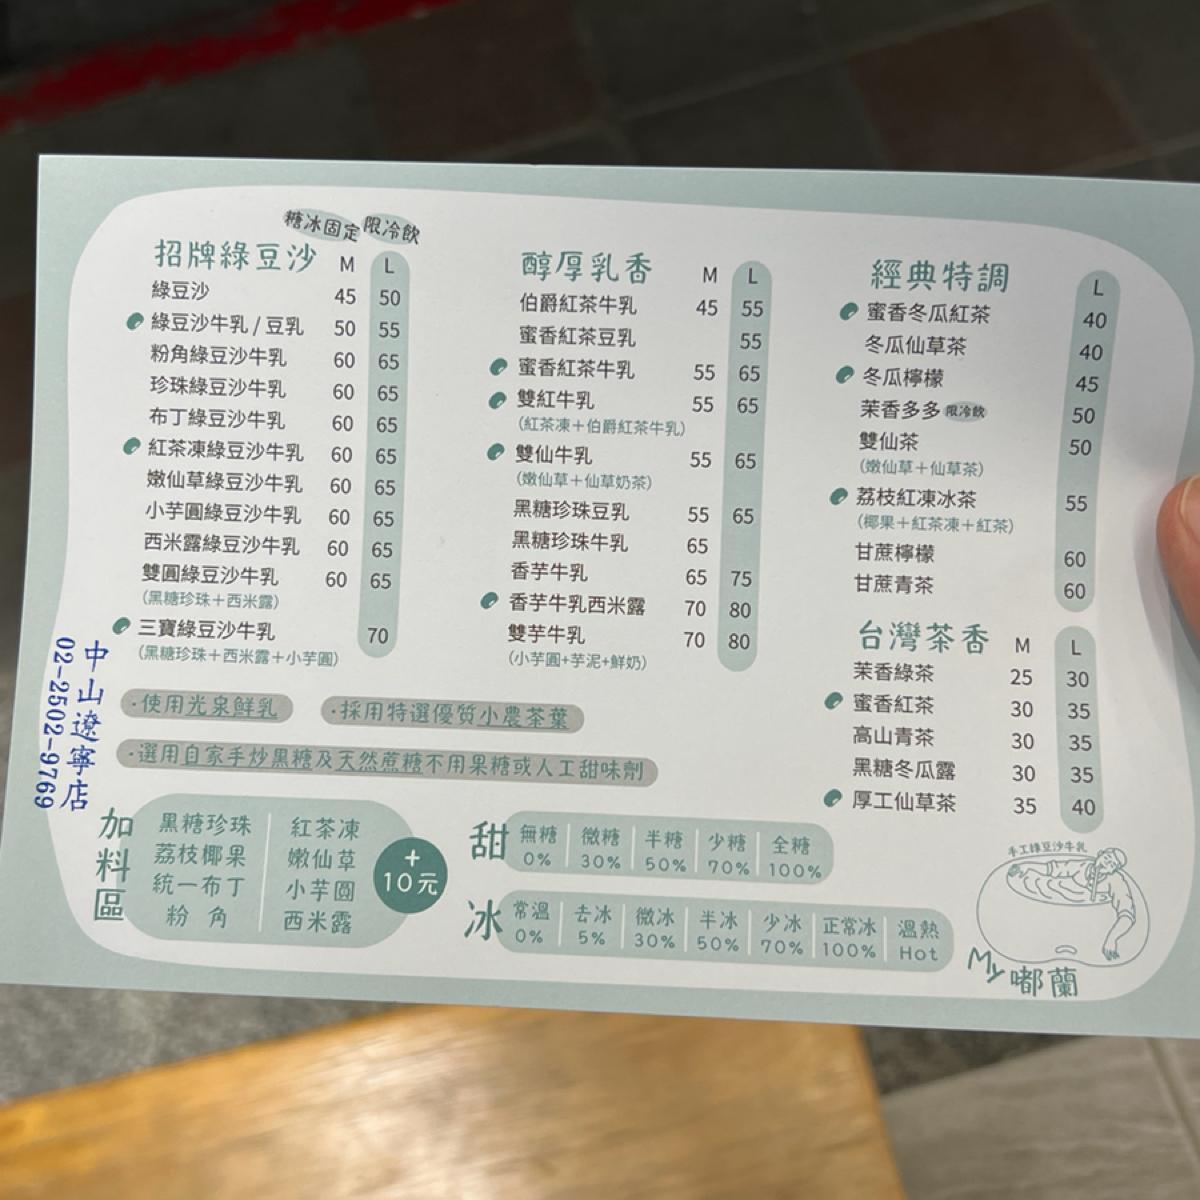 糖冰固定 限冷飲
招牌綠豆沙 M L
綠豆沙 45 50
綠豆沙牛乳/豆乳 50 55
粉角綠豆沙牛乳 60 65
珍珠綠豆沙牛乳 60 65
布丁綠豆沙牛乳 60 65
紅茶凍綠豆沙牛乳 60 65
嫩仙草綠豆沙牛乳 60 65
小芋圓綠豆沙牛乳 60 65
西米露綠豆沙牛乳 60 65
雙圓綠豆沙牛乳 60 65
(黑糖珍珠+西米露)
三寶綠豆沙牛乳 70
(黑糖珍珠+西米露+小芋圓)
醇厚乳香 M L
伯爵紅茶牛乳 45 55
蜜香紅茶豆乳 55
蜜香紅茶牛乳 55 65
雙紅牛乳 55 65
(紅茶凍+伯爵紅茶牛乳)
雙仙牛乳 55 65
(嫩仙草+仙草奶茶)
黑糖珍珠豆乳 55 65
黑糖珍珠牛乳 65
香芋牛乳 65 75
香芋牛乳西米露 70 80
雙芋牛乳 70 80
(小芋圓+芋泥+鮮奶)
經典特調 L
蜜香冬瓜紅茶 40
冬瓜仙草茶 40
冬瓜檸檬 45
茉香多多 限冷飲 50
雙仙茶 50
(嫩仙草+仙草茶)
荔枝紅凍冰茶 55
(椰果+紅茶凍+紅茶)
甘蔗檸檬 60
甘蔗青茶 60
台灣茶香 M L
茉香綠茶 25 30
蜜香紅茶 30 35
高山青茶 30 35
黑糖冬瓜露 30 35
厚工仙草茶 35 40
中山遼寧店
02-2502-9769
·使用光泉鮮乳
·採用特選優質小農茶葉
·選用自家手炒黑糖及天然蔗糖不用果糖或人工甜味劑
加料區
黑糖珍珠 紅茶凍
荔枝椰果 嫩仙草
統一布丁 小芋圓
粉角 西米露
+
10元
甜 無糖 微糖 半糖 少糖 全糖
0% 30% 50% 70% 100%
冰 常溫 去冰 微冰 半冰 少冰 正常冰 溫熱
0% 5% 30% 50% 70% 100% Hot
手工綠豆沙牛乳
My 嘟蘭